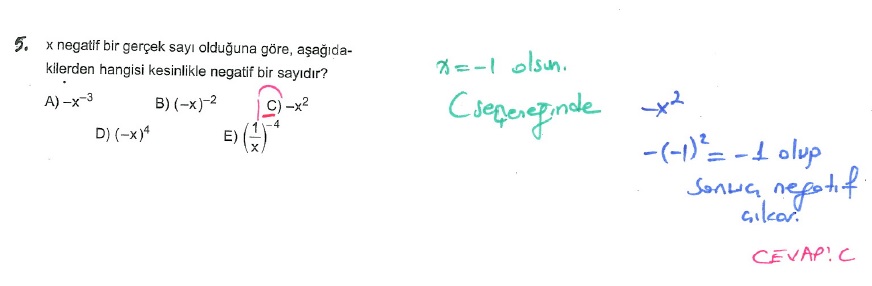 5. x negatif bir gerçek sayı olduğuna göre, aşağıda-
kilerden hangisi kesinlikle negatif bir sayıdır?
A) –x⁻³ B) (–x)⁻² C) –x²
D) (–x)⁴ E) (1/x)⁻⁴
x = –1 olsun.
C seçeneğinde –x²
–(–1)² = –1 olup
sonuç negatif
çıkar.
CEVAP: C